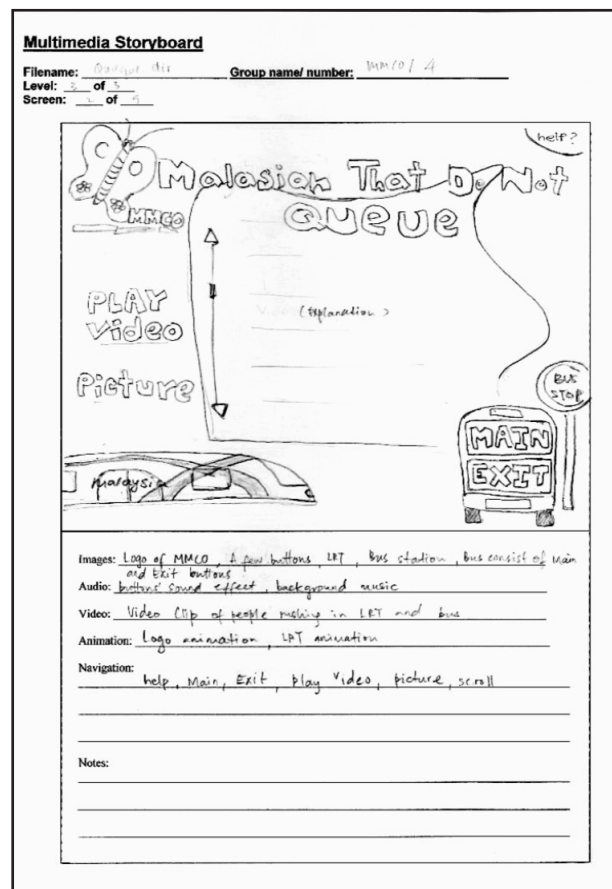 Multimedia Storyboard
Filename: Queque.dir Group name/ number: MMCO/ 4
Level: 3 of 3
Screen: 2 of 9
help?
Malasian That Do Not
Queue
MMCO
PLAY
Video
(Explanation)
Picture
BUS
STOP
MAIN
EXIT
malaysia
Images: Logo of MMCO, A few buttons, LRT, Bus station, Bus consist of Main
and Exit buttons
Audio: buttons' sound effect, background music
Video: Video Clip of people rushing in LRT and bus
Animation: Logo animation, LRT animation
Navigation:
help, Main, Exit, play video, picture, scroll
Notes: